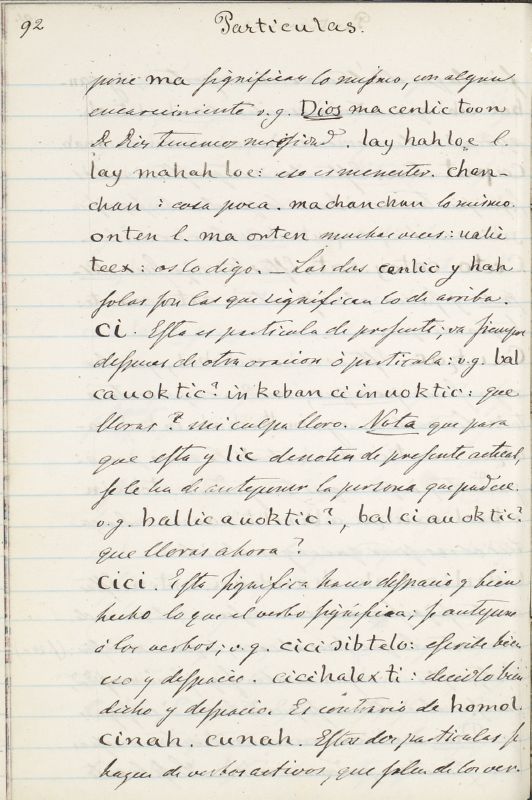 92 Particulas.
pone ma significan lo mismo, con algun
encarecimiento v.g. Dios macenlic toon
De Dios tenemos necesidad. lay hahloe l.
lay mahah loe: eso es menester. chan-
chan: cosa poca. machanchan lo mismo.
onten l. ma onten muchas veces: valic
teex: os lo digo. _ Las dos cenlic y hah
solas son las que significan lo de arriba.
ci. Esta es particula de presente; va siempre
despues de otra oracion ò particula: v.g. bal
ca uoktic? in keban ci in uoktic: que
lloras? mi culpa lloro. Nota que para
que esta y lic denoten de presente actual,
se le ha de anteponer la persona que padece.
v.g. ballic auoktic?, bal ci au oktic?
que lloras ahora?
cici. Esta significa hacer despacio y bien
hecho lo que el verbo significa; se antepone
à los verbos; v.g. cici dibtelo: escribe bien
eso y despacio. cicihalex ti: decidlo bien
dicho y despacio. Es contrario de homol.
cinah. cunah. Estas dos particulas se
hacen de verbos activos, que salen de los ver-